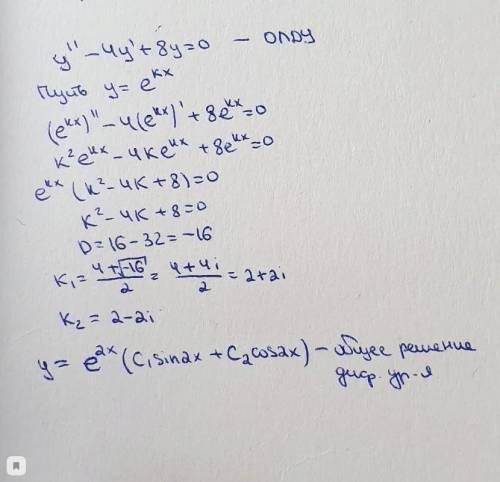 y'' - 4y' + 8y = 0 — ОЛДУ
Пусть y = e^{kx}
(e^{kx})'' - 4(e^{kx})' + 8e^{kx} = 0
k²e^{kx} - 4ke^{kx} + 8e^{kx} = 0
e^{kx}(k² - 4k + 8) = 0
k² - 4k + 8 = 0
D = 16 - 32 = -16
k₁ = \frac{4+√-16}{2} = \frac{4+4i}{2} = 2+2i
k₂ = 2-2i
y = e^{2x}(C₁sin2x + C₂cos2x) — общее решение
диф. ур-я